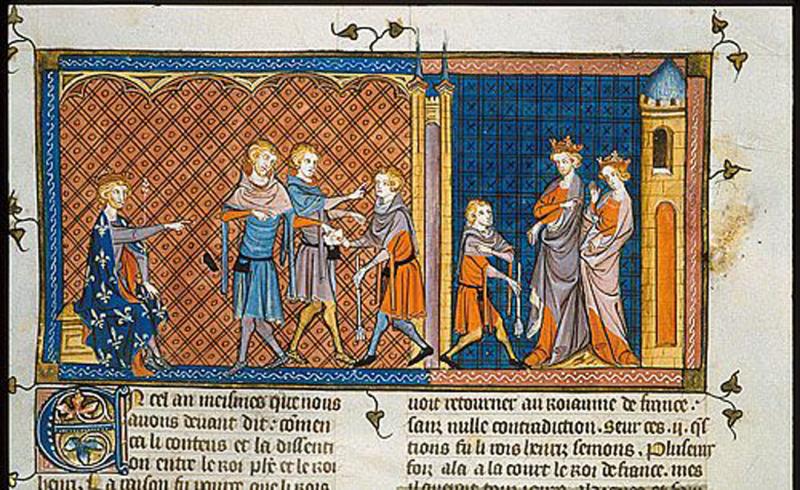 En cel an meismes que nous
auons deuant dit: cõmen
ca li contens et la dissenti
on entre le roi phẽ et le roi
henri. La raison fu pource que li rois
uoit retourner au roiaume de france:
sanz nulle contradiction. Seur ces .ij. q̃s
tions fu li rois henriz semons. Pluseur
foiz ala a la court le roi de france. mes